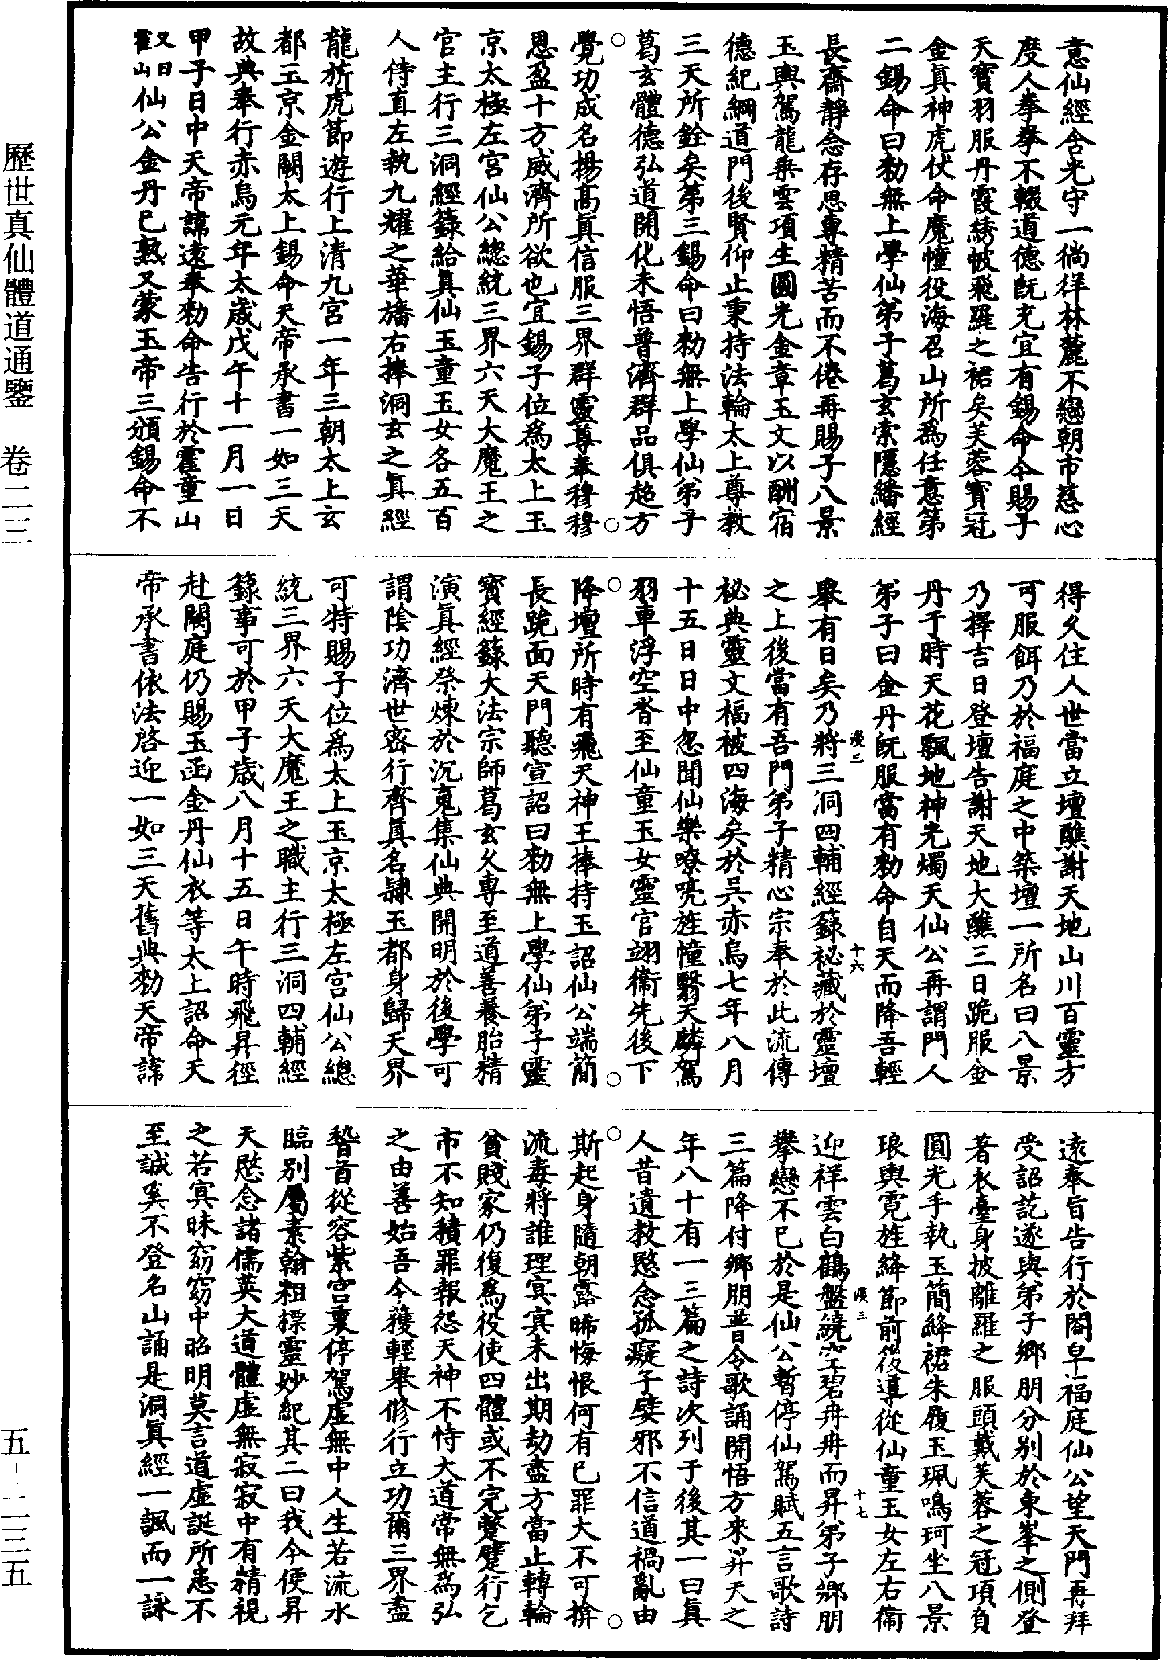 意仙經含光守一徜徉林麓不戀朝市慈心
度人拳拳不輟道德既充宜有錫命今賜子
天寶羽服丹霞綉帔飛羅之裙矣芙蓉寶冠
金真神虎伏命魔幢役海召山所為任意第
二錫命曰勑無上學仙弟子葛玄索隱繙經
長齋靜念存思專精苦而不倦再賜子八景
玉輿駕龍乘雲項生圓光金章玉文以酬宿
德紀綱道門後賢仰止秉持法輪太上尊教
三天所銓矣第三錫命曰勑無上學仙弟子
葛玄體德弘道開化未悟普濟群品俱超方
覺功成名揚高真信服三界群靈尊奉穆穆
恩盈十方威濟所欲也宜錫子位為太上玉
京太極左宮仙公總統三界六天大魔王之
官主行三洞經籙給真仙玉童玉女各五百
人侍直左執九耀之華旛右捧洞玄之真經
龍旂虎節遊行上清九宮一年三朝太上玄
都玉京金闕太上錫命天帝承書一如三天
故典奉行赤烏元年太歲戊午十一月一日
甲子日中天帝諱遠奉勑命告行於霍童山
又曰霍山仙公金丹已熟又蒙玉帝三頒錫命不
得久住人世當立壇醮謝天地山川百靈方
可服餌乃於福庭之中築壇一所名曰八景
乃擇吉日登壇告謝天地大醮三日跪服金
丹于時天花飄地神光燭天仙公再謂門人
弟子曰金丹既服當有勑命自天而降吾輕
舉有日矣乃將三洞四輔經籙祕藏於靈壇
之上後當有吾門弟子精心宗奉於此流傳
祕典靈文福被四海矣於吳赤烏七年八月
十五日日中忽聞仙樂嘹喨旌幢翳天麟駕
羽車浮空沓至仙童玉女靈官翊衛先後下
降壇所時有飛天神王捧持玉詔仙公端簡
長跪面天門聽宣詔曰勑無上學仙弟子靈
寶經籙大法宗師葛玄久專至道善養胎精
演真經祭煉於沉魂集仙典開明於後學可
謂陰功濟世密行齊真名隷玉都身歸天界
可特賜子位為太上玉京太極左宮仙公總
統三界六天大魔王之職主行三洞四輔經
籙事可於甲子歲八月十五日午時飛昇徑
赴闕庭仍賜玉函金丹仙衣等太上詔命天
帝承書依法啓迎一如三天舊典勑天帝諱
遠奉旨告行於閤皁福庭仙公望天門再拜
受詔訖遂與弟子鄉朋分別於東峯之側登
著衣臺身披離羅之服頭戴芙蓉之冠項負
圓光手執玉簡絳裙朱履玉珮鳴珂坐八景
琅輿霓旌絳節前後導從仙童玉女左右衛
迎祥雲白鶴盤繞空碧冉冉而昇弟子鄉朋
攀戀不已於是仙公暫停仙駕賦五言歌詩
三篇降付鄉朋普令歌誦開悟方來昇天之
年八十有一三篇之詩次列于後其一曰真
人昔遺教愍念孤癡子嬖邪不信道禍亂由
斯起身隨朝露晞悔恨何有已罪大不可揜
流毒將誰理冥冥未出期劫盡方當止轉輪
貧賤家仍復為役使四體或不完蹩躄行乞
市不知積罪報怨天神不恃大道常無為弘
之由善始吾今獲輕舉修行立功爾三界盡
稽首從容紫宮裏停駕虛無中人生若流水
臨別屬素翰粗標靈妙紀其二曰我今便昇
天愍念諸儒英大道體虛無寂寂中有精視
之若冥昧窈窈中昭明莫言道虛誕所患不
至誠奚不登名山誦是洞真經一諷而一詠
漠三
十六
漠三
十七
歷世真仙體道通鑒　卷二三
五—二三五